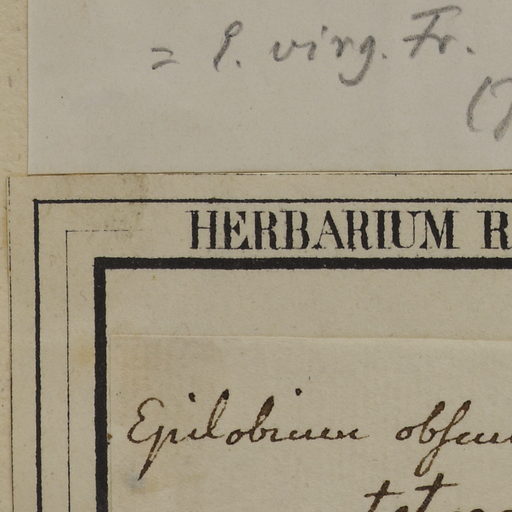 = E. virg. Fr.
(
HERBARIUM R
Epilobium obscu
tetra